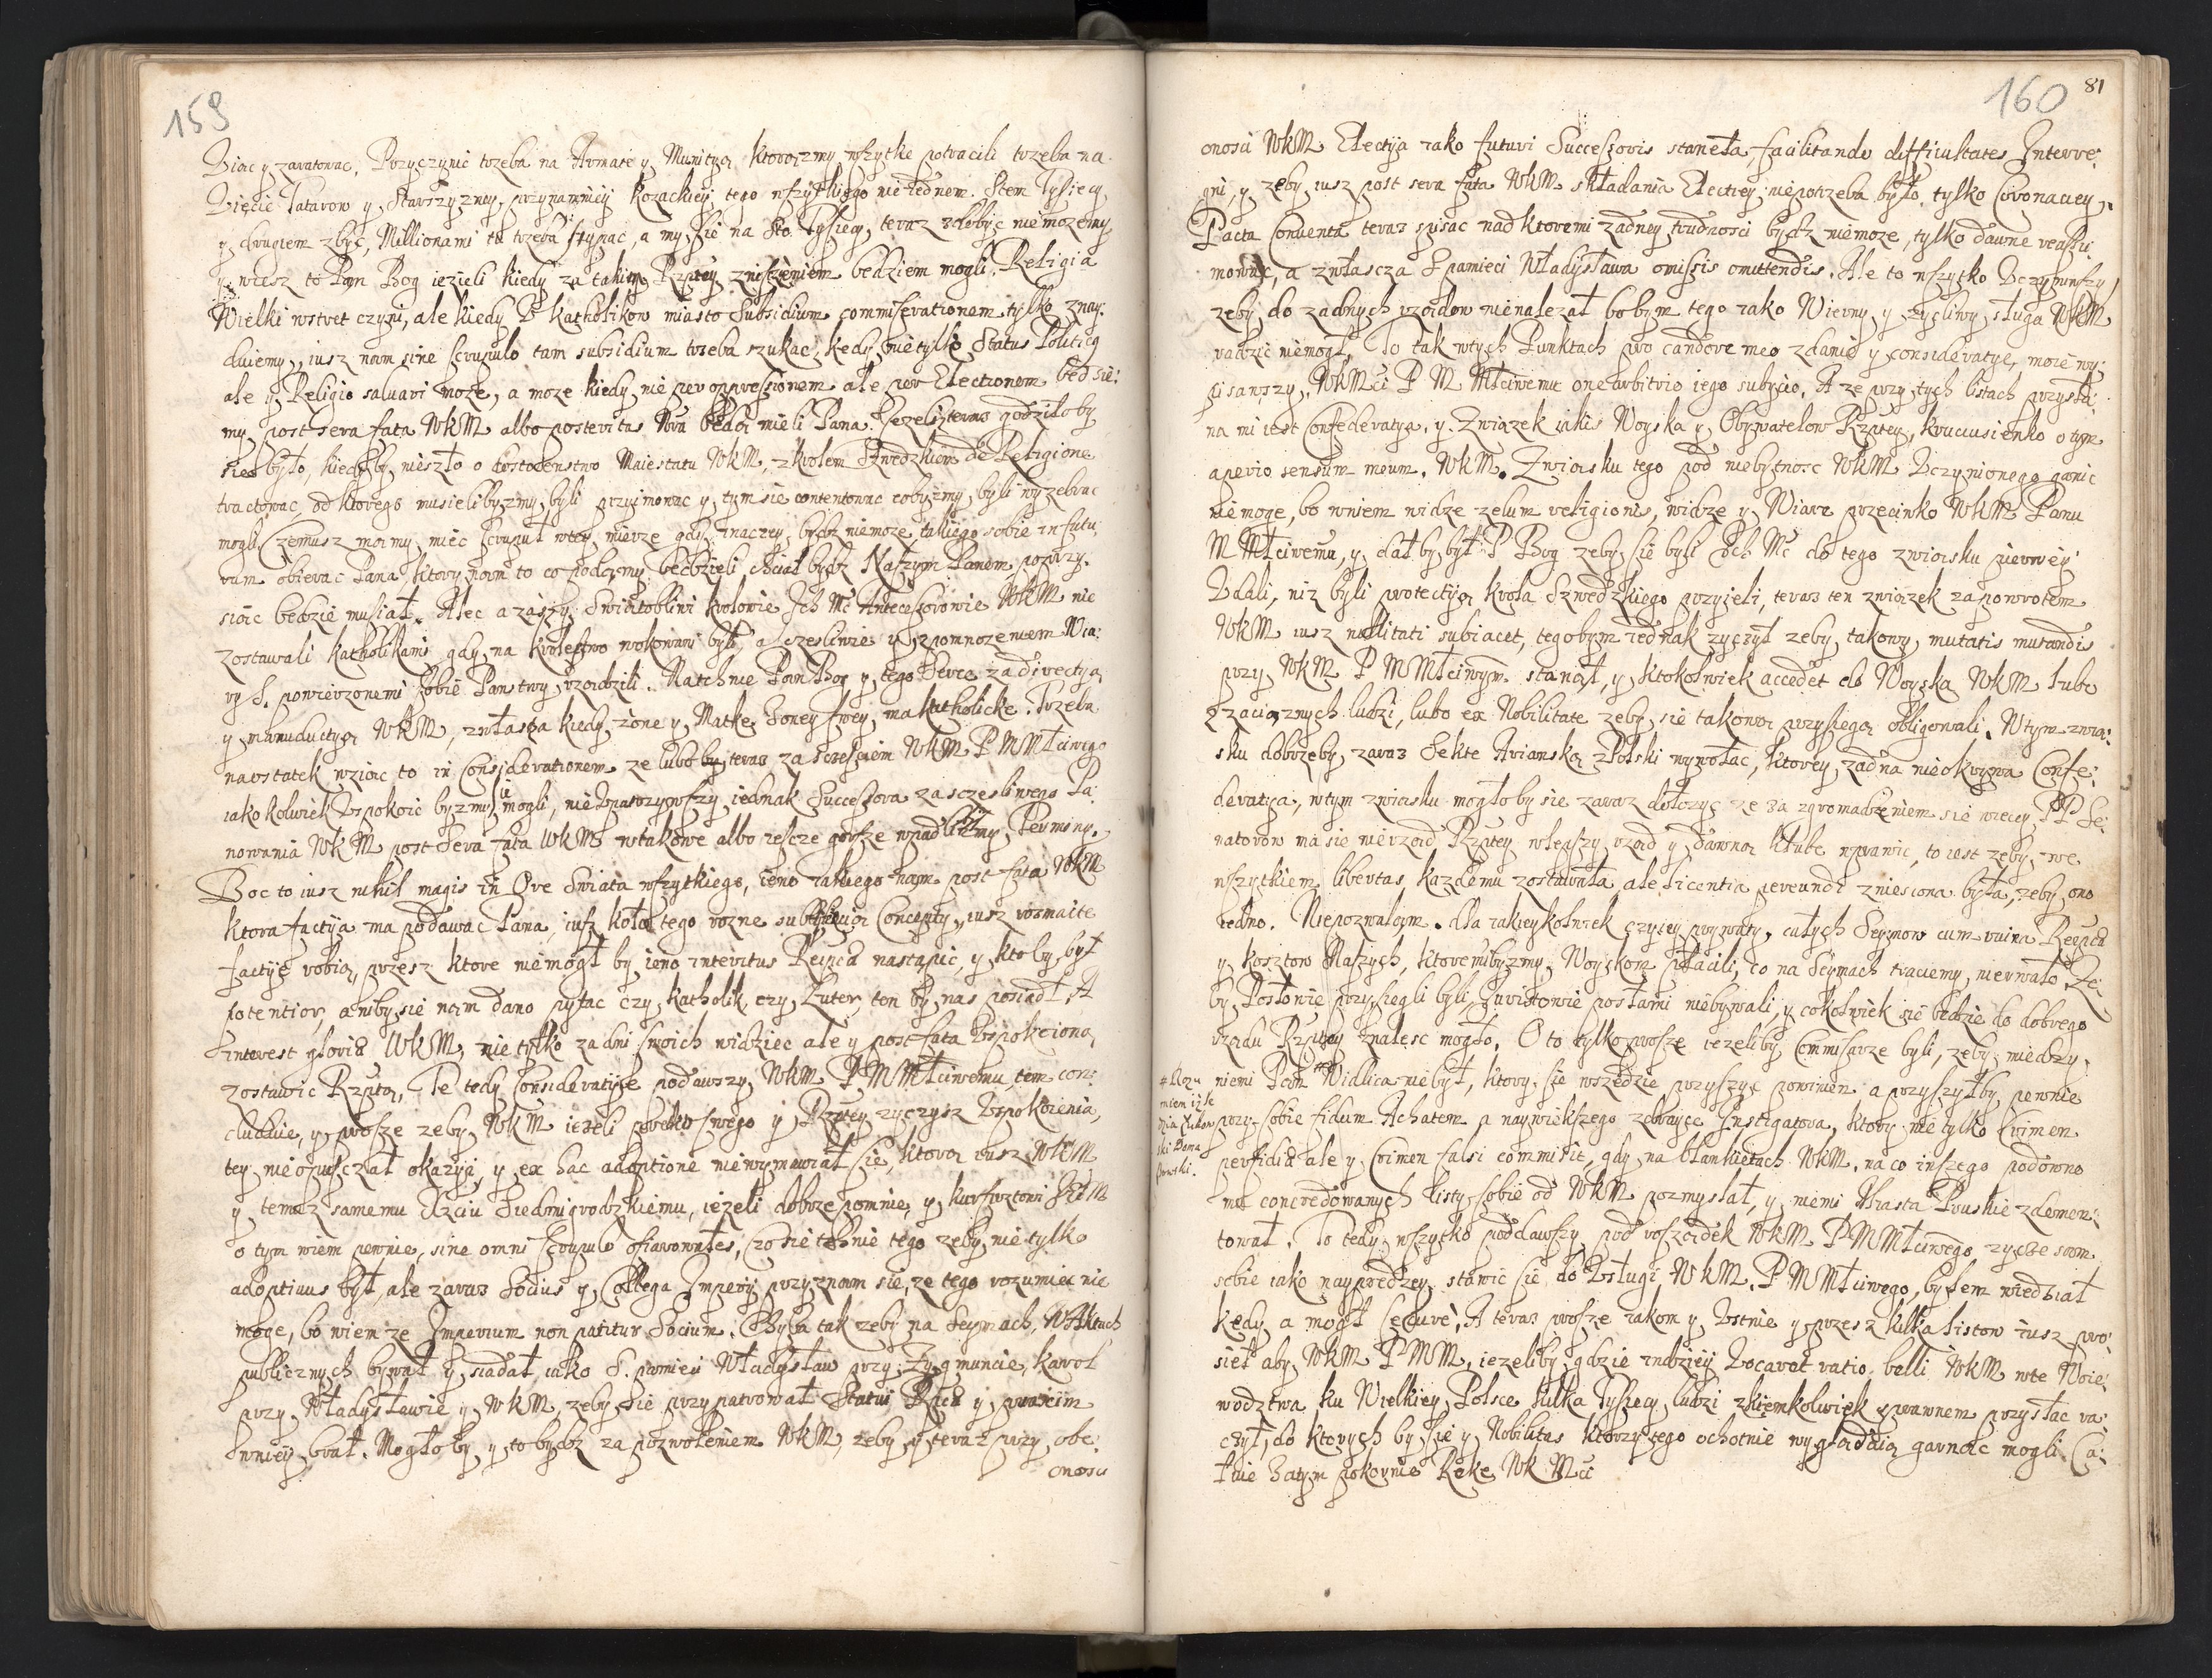 159
Ziac y zaratowac, Przyczynic trzeba na Armatę y Munitya ktorąszmy wszytkę potracili trzeba na
Zięcie Tatarow y Starszyzney przynamniey kozackiey, tego wszytkiego nie iednem Stem Tysięcy
y drugiem zbyc, Millionami tu trzeba sypac, a my się na Sto Tysięcy teraz zdobyc niemożemy
y wiesz to Pan Bog ieżeli kiedy za takim Rzptey zniszczeniem będziem mogli. Religia
Wielki wstręt czyni, ale kiedy P katholikow miasto Subsidium commiserationem tylko znay:
duiemy, iusz nam sine scrupulo tam subsidium trzeba szukac, kędy nie tylko Status Politicq
ale y Religio saluari może, a może kiedy nie per oppressionem ale per Electionem będzie:
my post sera fata WKM albo posteritas Nra będą mieli Pana. Jezeliz teraz godziłoby
się było, kiedyby nieszło o dostoienstwo Maiestatu WKM, z krolem Szwedzkiem de Religione
tractowac, od ktorego musielibyzmy byli przyimowac y tym się contentowac cobyzmy byli wyżebrac
mogli, Czemusz mamy miec scrupuł wtey mierze gdy inaczey bydz niemoże takiego sobie in futu
rum obierac Pana ktory nam to co podamy będzieli chciał bydz Naszym Panem poprzy:
siąc będzie musiał. Alec a zaszby Swiątobliwi krolowie Ich Mc Antecessorowie WKM nie
zostawali katholikami gdy na krolestwo wokowani byli, a szczesliwie y z pomnozeniem Wia:
ry S. powierzonemi sobie Panstwy rządzili. Natchnie Pan Bog y tego Serce za directyą
y manuductyą WKM, zwłasza kiedy żonę y Matkę Żoney swey ma katholickę. Trzeba
naostatek wziąc to in Considerationem ze lubo by teraz za szczęsciem WKM P M Mciwego
iako kolwiek Uspokoic byzmy się mogli, nie Upatrzywszy iednak Successora za sczesliwego Pa:
nowania WKM post Sera fata WKM wtakowe albo iescze gorsze wpadlibyzmy Terminy.
Boc to iusz nihil magis in Ore Swiata wszytkiego, ieno iakiego nam post fata WKM
ktora factya ma podawac Pana, iusz koło tego rozne subtilizuią Concepty, iusz rozmaite
factye robią, przesz ktore niemogł by ieno interitus Reipcae nastąpic, y ktoby był
potentior, aniby się nam dano pytac czy katholik czy Luter, ten by nas posiadł. A
Interest gloriae WKM, nie tylko za dni swoich widziec ale y post fata Uspokoioną
zostawic Rzptą. Te tedy Consideratiye podawszy WKM P M Mciwemu tem con:
cluduie, y proszę zeby WKM ieżeli prętko swego y Rzptey życzysz Uspokoienia,
tey nieopusczał okaziy, y ex hac adoptione niewymawiał się ktorą iusz WKM
y temusz samemu Xzciu Siedmigrodzkiemu, ieżeli dobrze pomnie, y kurfirsztowi JeoM
o tym wiem pewnie, sine omni scrupulo ofiarowałes, co się tknie tego zeby nie tylko
adoptiuus był, ale zaraz Socius y Collega Imperij przyznam się, ze tego rozumiec nie
mogę, bo wiem ze Imperium non patitur Socium. Chyba tak zeby na Seymach, W Aktach
publicznych bywał y siadał, iako S. pamięci Władysław przy Zygmuncie, karol
przy Władysławie y WKM, zeby się przypatrował Statui Rptcae y praxim
wniey brał. Mogłoby y to bydz za pozwoleniem WKM, zeby y teraz przy obe:
cnosci
160
81
cnosci WKM Electya iako futuri Successoris stanęła, facilitando difficultates Interre:
gni, y zeby iusz post sera fata WKM składania Electiey niepotrzeba było, tylko Coronaciey,
Pacta Conuenta teraz spisac nad ktoremi żadney trudnosci bydz niemoże, tylko dawne reassu
mowac, a zwłascza S pamięci Władysława omissis omittendis. Ale to wszytko Uczyniwszy
zeby do żadnych rządow nienależał bobym tego iako Wierny y życzliwy sługa WKM
radzic niemogł. To tak wtych Punktach pro candore meo zdanie y consideratye moie wy:
pisawszy, WKMci P M Mciwemu one arbitrio iego subijcio. A ze przy tych listach przysła:
na mi iest Confederatya, y Związek iakis Woyska y Obywatelow Rzptey, kruciusienko o tym
aperio sensum meum. WKM. Związku tego pod niebytnosc WKM Uczynionego ganic
niemogę, bo wniem widzę zelum religionis, widzę y Wiarę przeciwko WKM Panu
M Mciwemu, y dał by był P Bog zeby się byli Ich Mc do tego związku pierwey
Udali, niz byli protectyą krola Szwedzkiego przyięli, teraz ten związek za powrotem
WKM iusz nullitati subiacet, tegobym iednak życzył zeby takowy mutatis mutandis
przy WKM P M Mciwym stanął, y ktokolwiek accedet do Woyska WKM lubo
z zaciąznych ludzi, lubo ex Nobilitate zeby się takową przysięgą obligowali. Wtym zwia:
sku dobrzeby zaraz Sektę Ariańską z Polski wywołac, ktorey żadna nieokrywa Confe:
deratya, wtym zwiasku mogłoby się zaraz dołożyc ze za zgromadzeniem się więcey PP Se:
natorow ma się nierząd Rzptey wlepszy rząd y dawną klubę wprawic, to iest zeby we
wszytkiem libertas każdemu zostawała, ale licentia pereundi zniesiona była, zeby ono
iedno Niepozwalam. dla iakieykolwiek czyiey prywaty, całych Seymow cum ruina Reipcae
y kosztow Naszych, ktoremibyzmy Woyskom płacili, co na Seymach tracimy, nierwało. Ze:
by Posłowie przysięgli byli, Juristowie posłami niebywali, y cokolwiek się będzie do dobrego
rządu Rzptey znalesc mogło. O to tylko proszę ieżeliby Commisarze byli, zeby między
niemi Pan # Widlica niebył, ktory się wszędzie przyszyc powinien a przyszyłby pewnie
przy sobie fidum Achatem a naywiększego zdrayce Instigatora, ktory nie tylko Crimen
perfidiae ale y Crimen falsi commisit, gdy na blankietach WKM, na co inszego podobno
mu concredowanych listy sobie od WKM pozmyslał, y niemi Miasta Pruskie zdemen:
tował. To tedy wszytko poddawszy pod rozsądek WKM P M Mciwego życzę sam
sobie iako nayprędzey stawic się do Usługi WKM P M Mciwego, bylem wiedział
kędy a mogł secure. A teraz proszę iakom y Ustnie y przesz kilka listow iusz pro:
sieł aby WKM P M M, ieżeliby gdzie indziey Uocaret ratio belli WKM wte Woie:
wodztwa ku Wielkiey Polsce kilka Tysięcy ludzi zkiemkolwiek sprawnem przysłac ra:
czył, do ktorych by się y Nobilitas ktorzy tego ochotnie wyglądaią garnąc mogli. Ca:
łuie zatym pokornie Rękę WKMci
# Rozu
miem iż